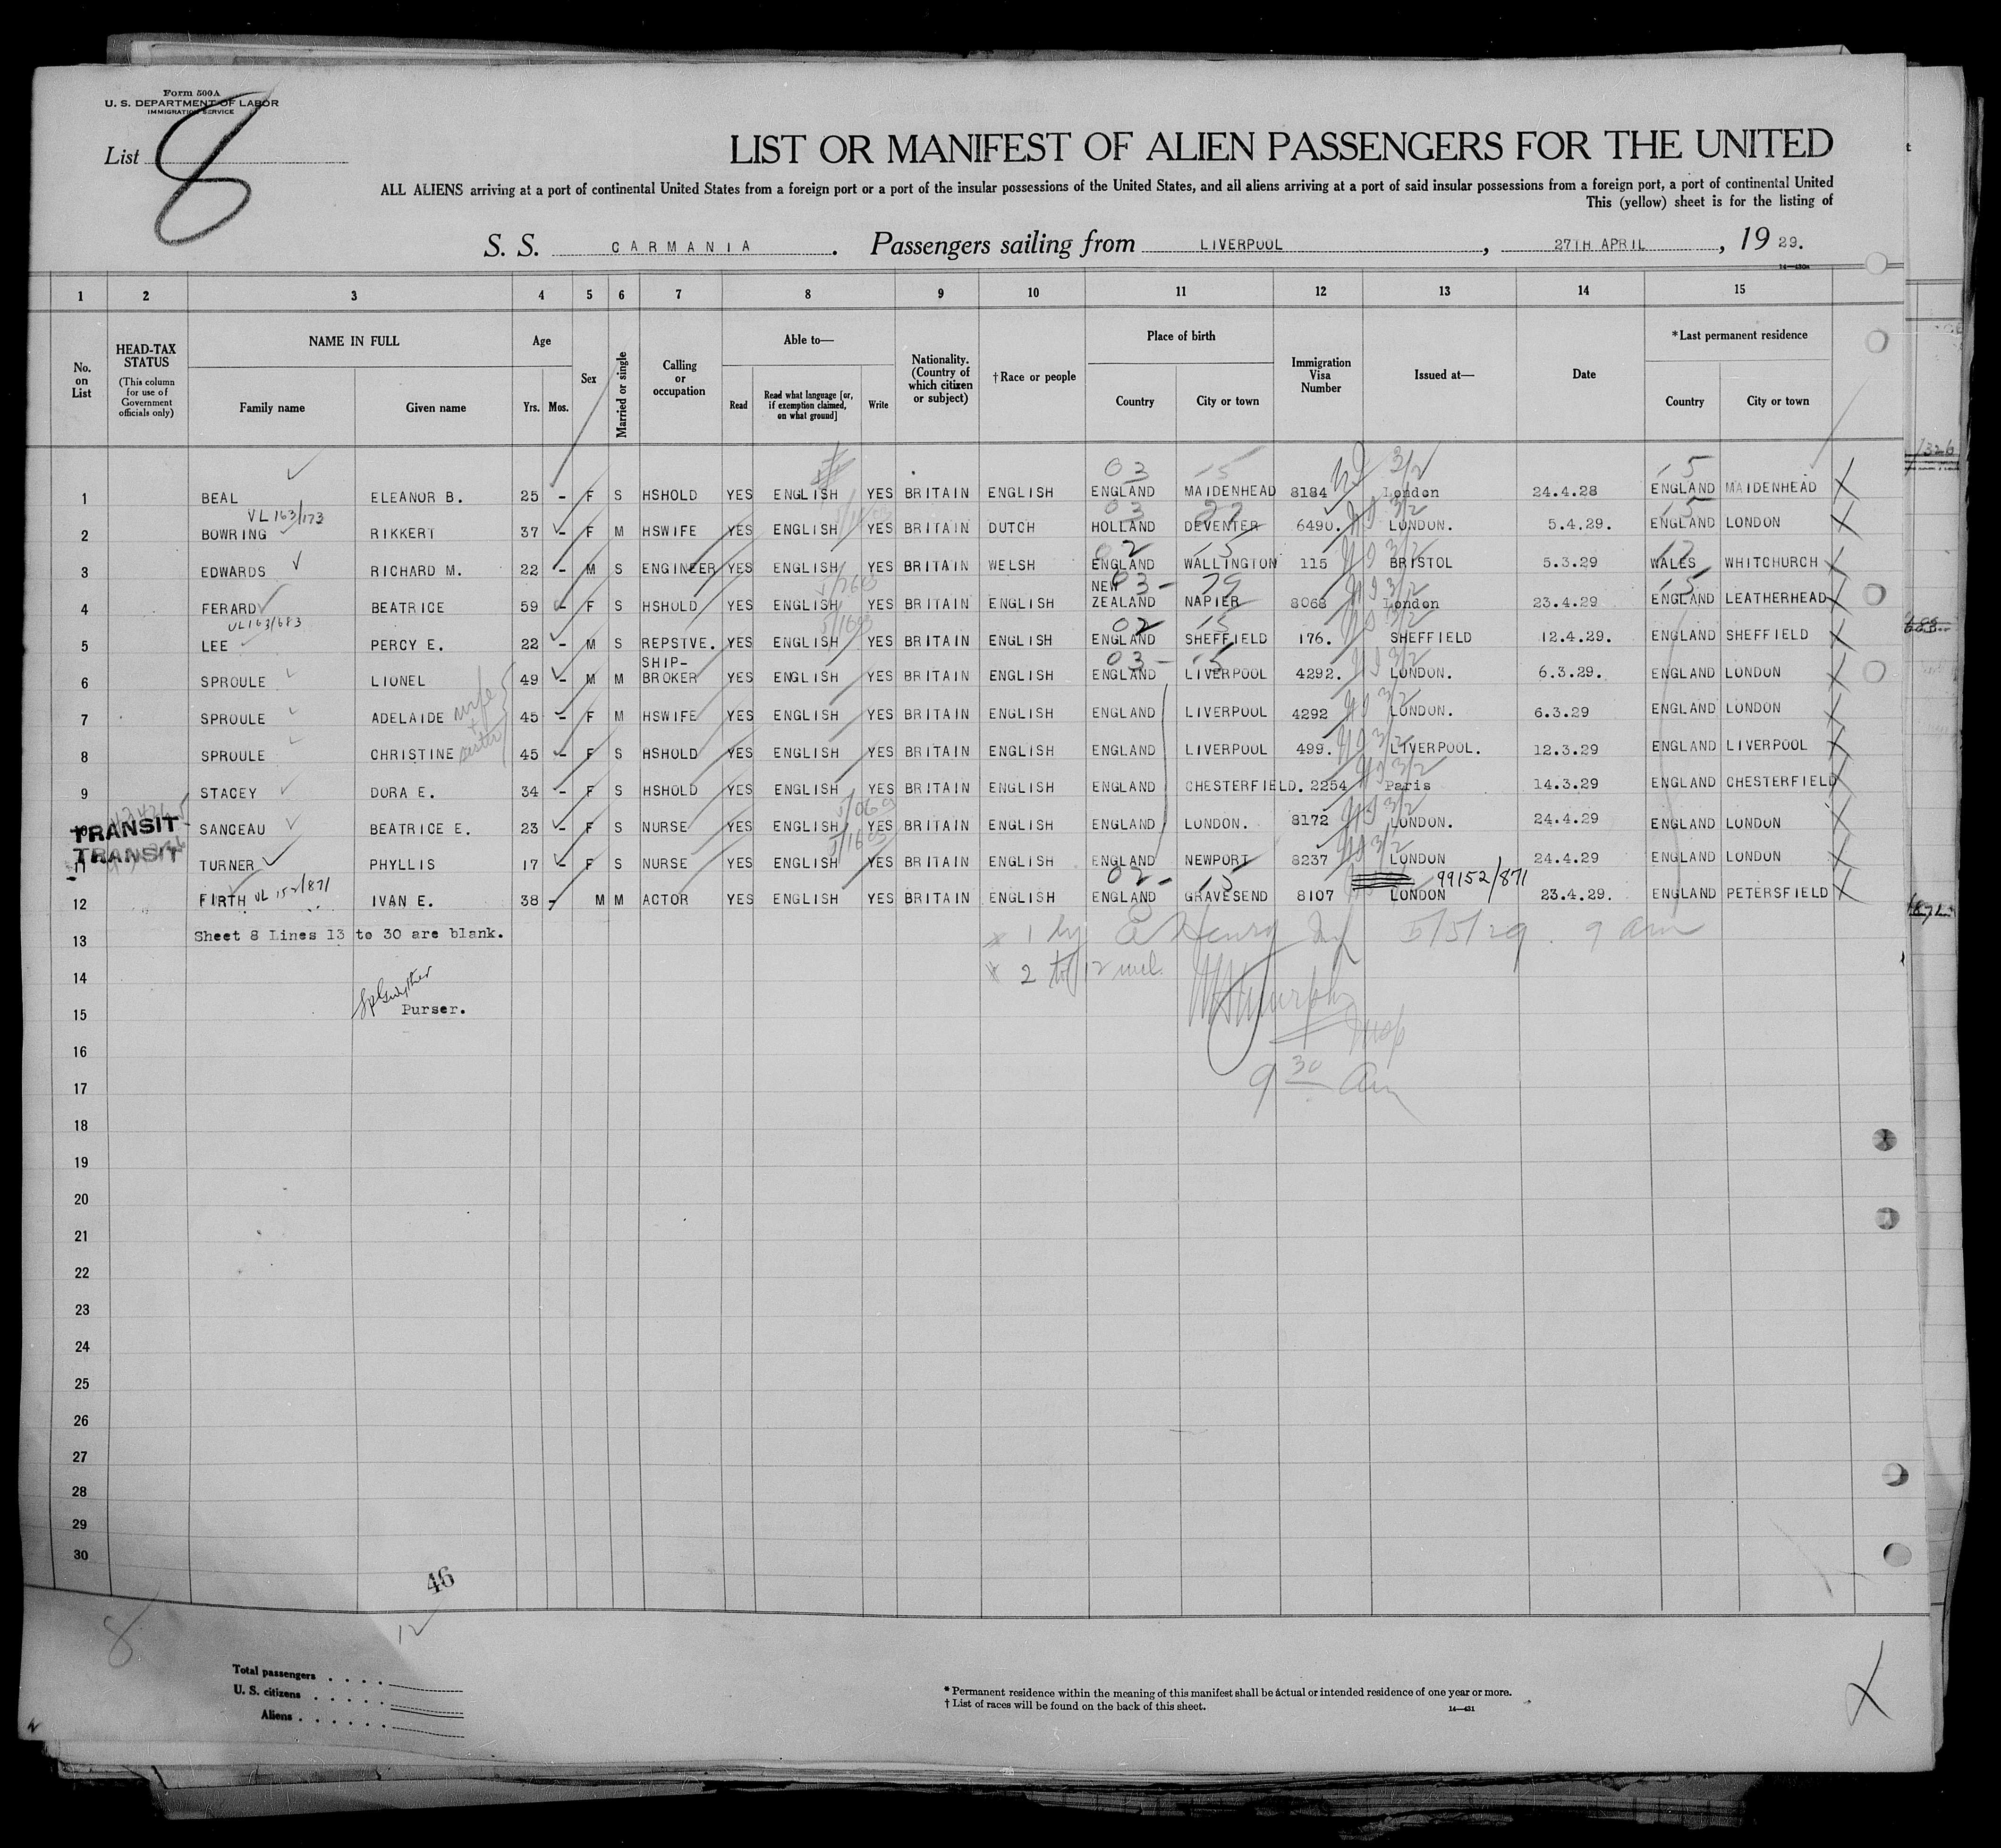 Form 500A
U. S. DEPARTMENT OF LABOR
IMMIGRATION SERVICE
List 8
LIST OR MANIFEST OF ALIEN PASSENGERS FOR THE UNITED
ALL ALIENS arriving at a port of continental United States from a foreign port or a port of the insular possessions of the United States, and all aliens arriving at a port of said insular possessions from a foreign port, a port of continental United
This (yellow) sheet is for the listing of
S. S. CARMANIA. Passengers sailing from LIVERPOOL, 27TH APRIL, 1929.
14—430a
1 2 3 4 5 6 7 8 9 10 11 12 13 14 15
No. on List
HEAD-TAX STATUS (This column for use of Government officials only)
NAME IN FULL
Family name Given name
Age
Yrs. Mos.
Sex
Married or single
Calling or occupation
Able to—
Read Read what language [or, if exemption claimed, on what ground] Write
Nationality. (Country of which citizen or subject)
†Race or people
Place of birth
Country City or town
Immigration Visa Number
Issued at—
Date
*Last permanent residence
Country City or town
1 BEAL ELEANOR B. 25 - F S HSHOLD YES ENGLISH YES BRITAIN ENGLISH ENGLAND MAIDENHEAD 8184 London 24.4.28 ENGLAND MAIDENHEAD
VL 163/173
2 BOWRING RIKKERT 37 - F M HSWIFE YES ENGLISH YES BRITAIN DUTCH HOLLAND DEVENTER 6490. LONDON. 5.4.29. ENGLAND LONDON
3 EDWARDS RICHARD M. 22 - M S ENGINEER YES ENGLISH YES BRITAIN WELSH ENGLAND WALLINGTON 115 BRISTOL 5.3.29 WALES WHITCHURCH
4 FERARD BEATRICE 59 - F S HSHOLD YES ENGLISH YES BRITAIN ENGLISH NEW ZEALAND NAPIER 8068 London 23.4.29 ENGLAND LEATHERHEAD
VL163/683
5 LEE PERCY E. 22 - M S REPSTVE. YES ENGLISH YES BRITAIN ENGLISH ENGLAND SHEFFIELD 176. SHEFFIELD 12.4.29. ENGLAND SHEFFIELD
6 SPROULE LIONEL 49 - M M SHIP-BROKER YES ENGLISH YES BRITAIN ENGLISH ENGLAND LIVERPOOL 4292. LONDON. 6.3.29. ENGLAND LONDON
7 SPROULE ADELAIDE wife 45 - F M HSWIFE YES ENGLISH YES BRITAIN ENGLISH ENGLAND LIVERPOOL 4292 LONDON. 6.3.29 ENGLAND LONDON
8 SPROULE CHRISTINE sister 45 - F S HSHOLD YES ENGLISH YES BRITAIN ENGLISH ENGLAND LIVERPOOL 499. LIVERPOOL. 12.3.29 ENGLAND LIVERPOOL
9 STACEY DORA E. 34 - F S HSHOLD YES ENGLISH YES BRITAIN ENGLISH ENGLAND CHESTERFIELD. 2254 Paris 14.3.29 ENGLAND CHESTERFIELD
TRANSIT SANCEAU BEATRICE E. 23 - F S NURSE YES ENGLISH YES BRITAIN ENGLISH ENGLAND LONDON. 8172 LONDON. 24.4.29 ENGLAND LONDON
TRANSIT 11 TURNER PHYLLIS 17 - F S NURSE YES ENGLISH YES BRITAIN ENGLISH ENGLAND NEWPORT 8237 LONDON 24.4.29 ENGLAND LONDON
99152/871
12 FIRTH VL 152/871 IVAN E. 38 - M M ACTOR YES ENGLISH YES BRITAIN ENGLISH ENGLAND GRAVESEND 8107 LONDON 23.4.29. ENGLAND PETERSFIELD
13 Sheet 8 Lines 13 to 30 are blank.
1 by E Henry 5/5/29. 9 am
14 2 to 12 incl.
15 Purser.
16
9 30 am
17
18
19
20
21
22
23
24
25
26
27
28
29
30
46
8
12
Total passengers . . . .
U. S. citizens . . . . .
Aliens . . . . . .
* Permanent residence within the meaning of this manifest shall be actual or intended residence of one year or more.
† List of races will be found on the back of this sheet.
14—431